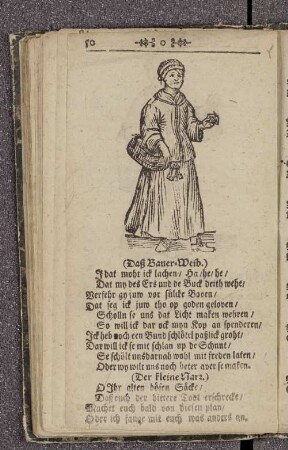 50 0
(Daß Bauer-Weib.)
J dat moht ick lachen/ Ha/he/he/
Dat my des Ers und de Buck deith wehe/
Versehr gy juw vor sülcke Baven/
Dat seg ick juw tho op goden geloven/
Scholln se uns dat Licht maken wehren/
So will ick dar ock myn Kop an spenderen/
Ick heb noch een Bund schlötel paßlick groht/
Dar will ick se mit schlan up de Schnut/
Se schölt uns darnah wohl mit freden laten/
Oder wy wilt uns noch beter aver se maken.
(Der kleine Narr.)
O Ihr alten bösen Säcke/
Daß euch der bittere Todt erschrecke/
Machet euch bald von diesen plan/
Oder ich fange mit euch was anders an.